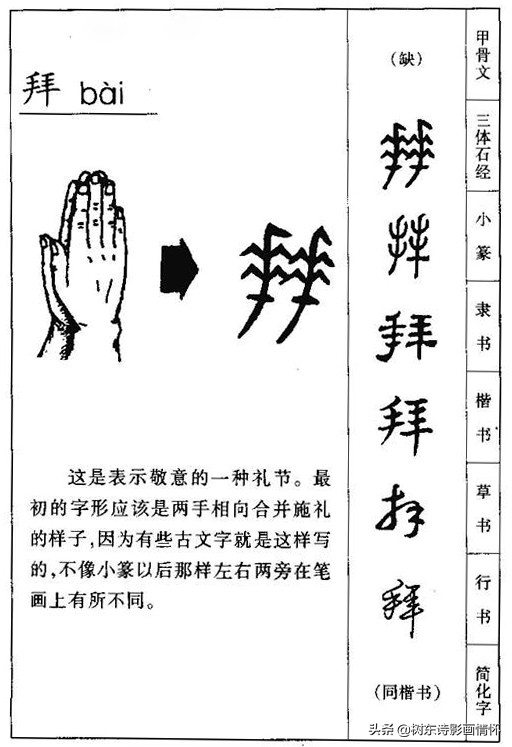 拜 bài
这是表示敬意的一种礼节。最
初的字形应该是两手相向合并施礼
的样子,因为有些古文字就是这样写
的,不像小篆以后那样左右两旁在笔
画上有所不同。
(缺)
甲骨文
三体石经
拜
小篆
拜
隶书
拜
楷书
拜
草书
拜
行书
(同楷书)
简化字
头条 @树东诗影画情怀